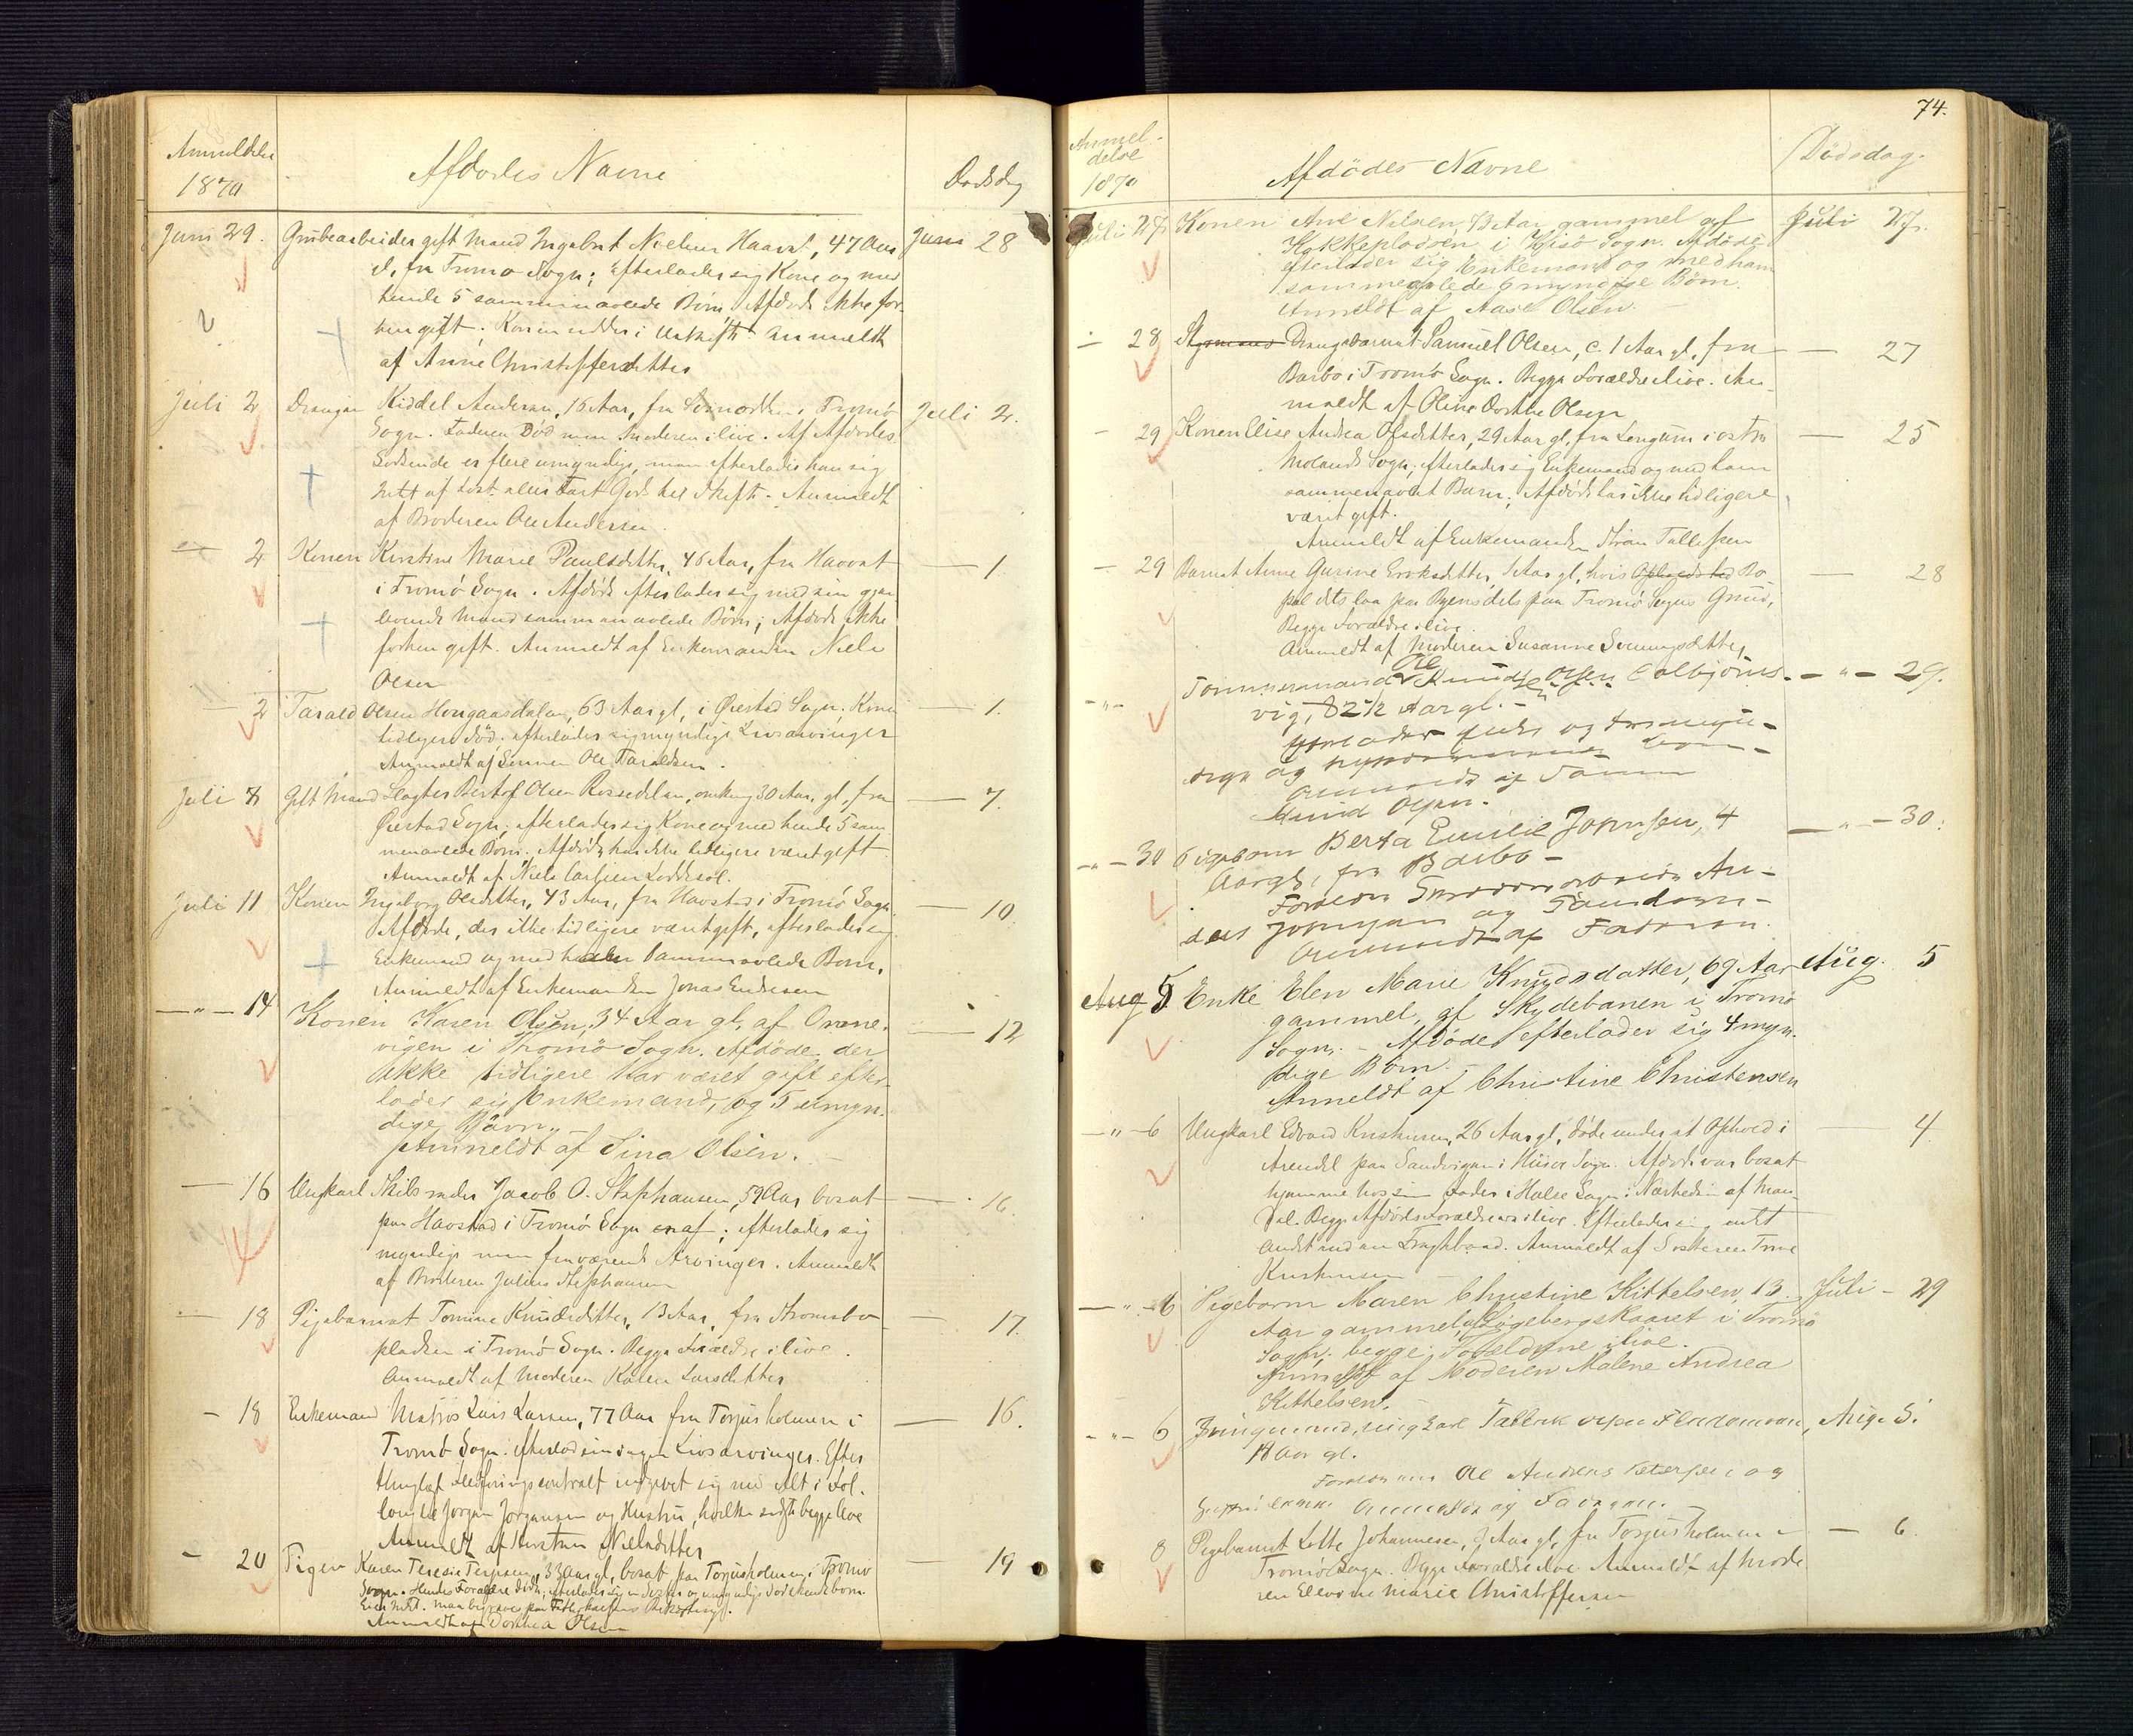 Anmeldelse
1870
Afdødes Navne
Dødsdag
Juni 29. Grubearbeider gift Mand Ingebret Nielsen Haavat, 47 Aar Juni 28
gl, fra Tromø Sogn; efterlader sig Kone og med
hende 5 sammenavlede Børn. Afdøde ikke for-
hen gift. Konen sidder i Uskiftet. Anmeldt
af Anne Christoffersdatter
Juli 2 Drengen Kiddel Andersen, 16 Aar, fra i Tromø Juli 2.
Sogn. Faderen Død men Moderen ilive. Af Afdødes
Sødskende er flere umyndige, men efterlader han sig
intet af Løst eller Fast Gods til Skifte. Anmeldt
af Broderen Ole Andersen.
— 2 Konen Kirstine Marie Paulsdatter, 46 Aar, fra Havvat — 1.
i Tromø Sogn. Afdøde efterlader sig med sin gjen-
levende Mand sammenavlede Børn; Afdøde ikke
forhen gift. Anmeldt af Enkemanden Niels
Olsen
— 2 Tarald Olsen Hougaasdalen, 63 Aar gl, i Øiestad Sogn. Konen — 1.
tidligere død; efterlader sig myndige Livsarvinger
Anmeldt af Sønnen Ole Taraldsen.
Juli 8 Gift Mand Slagter Bertof Olsen Rossedalen, omkring 30 Aar gl, fra — 7.
Øiestad Sogn; efterlader sig Kone og med hende 5 sam-
menavlede Børn. Afdøde har ikke tidligere været gift
Anmeldt af Niels Carlsen Løddesøl.
Juli 11 Konen Ingeborg Olsdatter, 43 Aar, fra Havstad i Tromø Sogn. — 10.
Afdøde, der ikke tidligere været gift, efterlader sig
Enkemand og med sammenavlede Børn.
Anmeldt af Enkemanden Jonas Endresen
— " — 14 Konen Karen Olsen, 34 Aar gl, af Omne- — 12
vigen i Thromø Sogn. Afdøde, der
ikke tidligere har været gift efter-
lader sig Enkemand, og 5 umyn-
dige Børn.
Anmeldt af Sina Olsen. —
— 16 Ungkarl Skibsreder Jacob O. Stephansen, 59 Aar bosat — 16.
paa Havstad i Tromø Sogn; efterlader sig
myndige men fraværende Arvinger. Anmeldt
af Broderen Julius Stephansen
— 18 Pigebarnet Tomine Knudsdatter, 13 Aar, fra Strømsbo- — 17.
pladsen i Tromø Sogn. Begge Forældre ilive.
Anmeldt af Moderen Karen Larsdatter
— 18 Enkemand Matros Lars Larsen, 77 Aar fra Torjusholmen i — 16.
Tromø Sogn. efterlod sin ingen Livsarvinger. Efter
thinglæst Fledføringscontrakt indgivet sig med Alt i Fol-
Jørgen Jørgensen og Hustru, hvilke sidste begge leve
Anmeldt af Kirstine Nielsdatter
— 20 Pigen Karen Teresie Terjesen, 33 Aar gl, bosat paa Torjusholmen i Tromø — 19
Sogn. Hendes Forældre døde; efterlader sig en Søster og umyndige Sødskendebørn
Eier intet. man begraves paa Fattigkassens Bekostning.
Anmeldt af Dorthea Olsen
74.
Anmel-
delse
1870
Afdødes Navne
Dødsdag.
Juli 27 Konen Ane Nilsen, 73 Aar gammel af Juli 27.
Kokkepladsen i Hisø Sogn. Afdøde
efterlader sig Enkemand og med ham
sammenavlede 6 myndige Børn.
Anmeldt af Aase Olsen.
— 28 Drengebarnet Samuel Olsen, c. 1 Aar gl, fra — 27
Barbo i Tromø Sogn. Begge Forældre ilive. An-
meldt af Oline Dorthe Olsen
— 29 Konen Elise Andrea Olsdatter, 29 Aar gl, fra Longum i østre — 25
Molands Sogn; efterlader sig Enkemand og med ham
sammenavlet Barn; Afdøde har ikke tidligere
været gift.
Anmeldt af Enkemanden Tellefsen
— 29 Barnet Anne Gurine Eriksdatter, 1 Aar gl, hvis Opholdssted Bo- — 28
pæl dels laa paa Byens dels paa Tromø Sogns Grund,
Begge Forældre ilive.
Anmeldt af Moderen Susanne Sveinungsdatter
— " — Tømmermand Ole Knudsen Olsen Colbjørns- — " — 29.
vig, 82½ Aar gl. —
efterlader Enke og
og
Anmeldt af Sønnen
Knud Olsen.
— " — 30 Pigebarn Berta Emilie Johnsen, 4 — " — 30.
Aar gl, fra Barbo —
Forældre An-
ders Johnsen og
Anmeldt af Faderen.
Aug 5 Enke Elen Marie Knudsdatter, 69 Aar Aug. 5
gammel, af Skydebanen i Tromø
Sogn. — Afdøde efterlader sig 4 myn-
dige Børn.
Anmeldt af Christine Christensen
— " — 6 Ungkarl Edvard Kristensen, 26 Aar gl, døde under et Ophold i — 4.
Arendal paa Sandvigen i Hisø Sogn. Afdøde var bosat
hjemme hos sin Fader i Halse Sogn i Nærheden af Man-
dal. Begge Afdødes Forældre ere ilive. Efterlader sig intet
Andet end en Anmeldt af Søsteren Trine
Kristensen
— " — 6 Pigebarn Maren Christine Kittelsen, 13 Juli — 29
Aar gammel, af Løgebergskaaret i Tromø
Sogn. begge Forældrene ilive.
Anmeldt af Moderen Malene Andrea
Kittelsen.
— " — 6 Jungmand, ungkarl Tallak Olsen Flødemoen, Aug. 5.
18 Aar gl.
Forældrene Ole Andreas Petersen og
Anmeldt af Faderen. —
8 Pigebarnet Lotte Johannesen, 9 Aar gl, fra Torjusholmen i — 6.
Tromø Sogn. Begge Forældre ilive. Anmeldt af Mode-
ren Elevine Marie Christoffersen